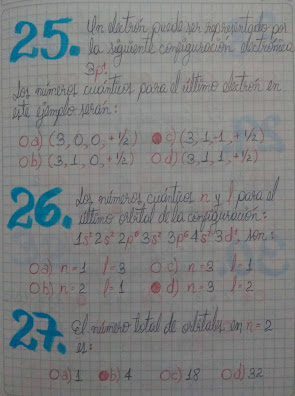 25. Un electrón puede ser representado por
la siguiente configuración electrónica
3p¹.
Los números cuánticos para el último electrón en
este ejemplo serán:
a) (3, 0, 0, +1/2) c) (3, 1, -1, +1/2)
b) (3, 1, 0, +1/2) d) (3, 1, 1, +1/2)
26. Los números cuánticos n y l para el
último orbital de la configuración:
1s² 2s² 2p⁶ 3s² 3p⁶ 4s² 3d¹, son:
a) n=1 l=3 c) n=3 l=1
b) n=2 l=1 d) n=3 l=2
27. El número total de orbitales, en n=2
es:
a) 1 b) 4 c) 18 d) 32